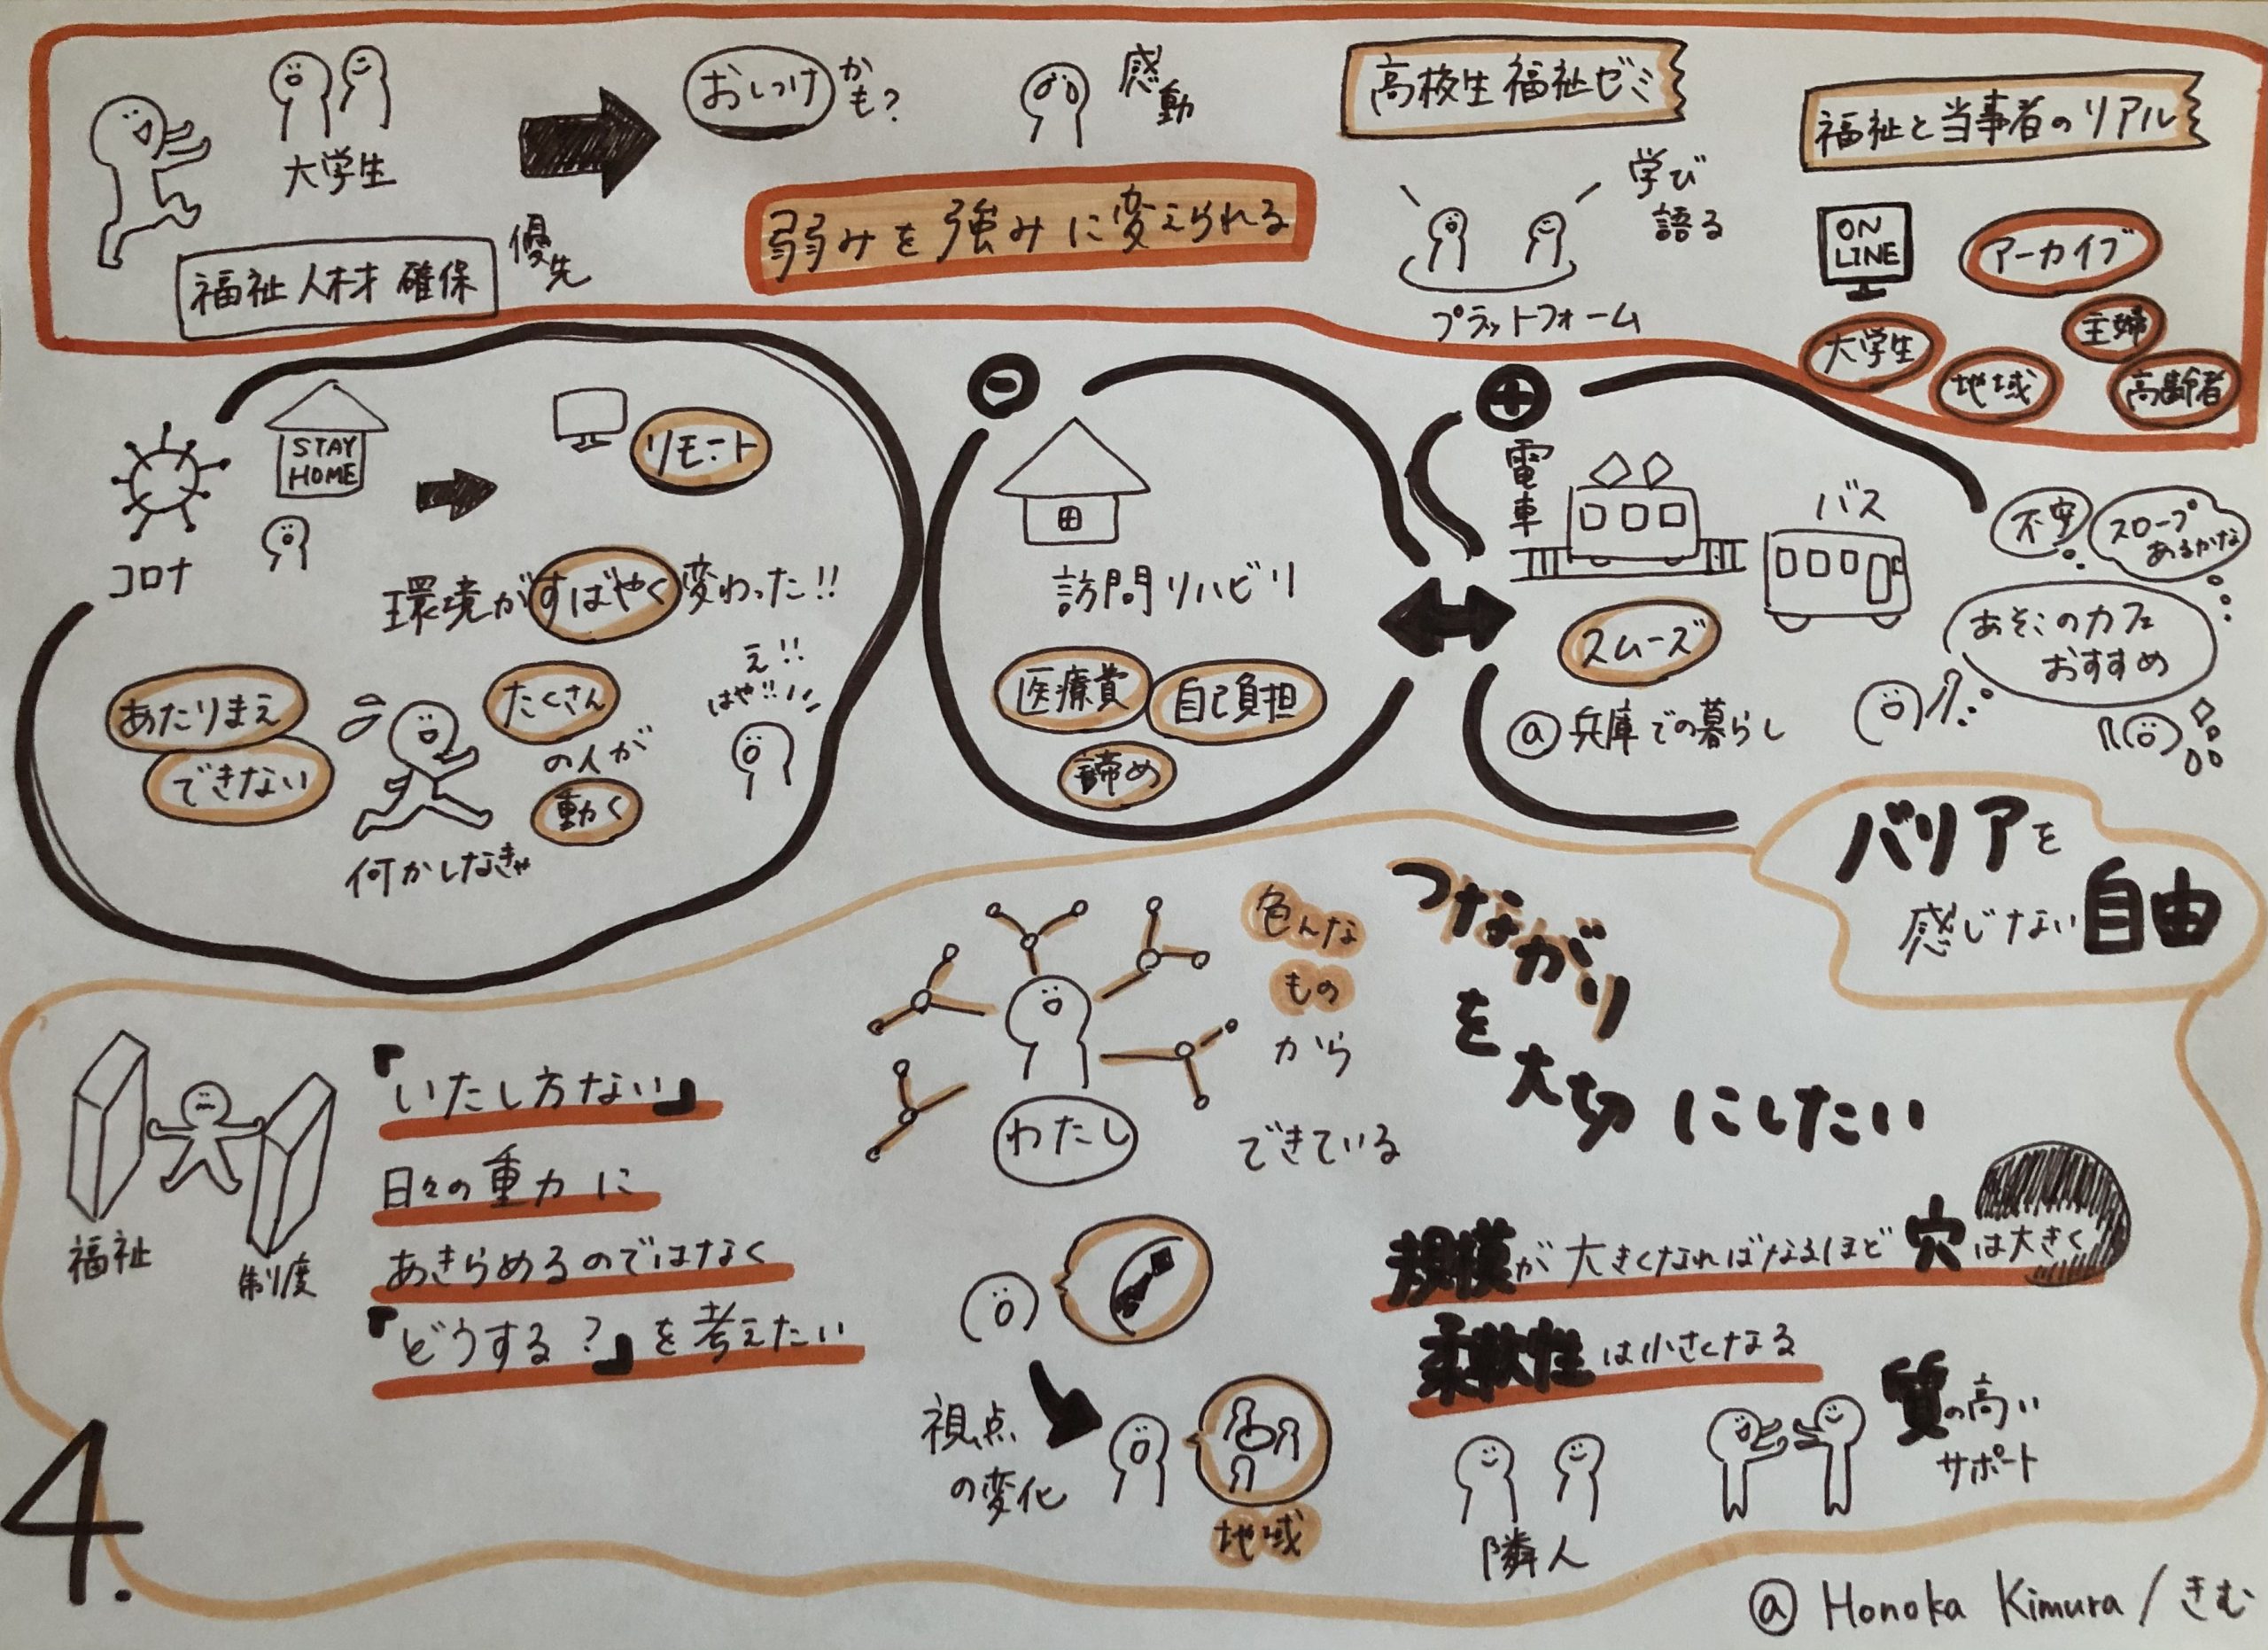 大学生
福祉人材確保
優先
おしつけ
かも?
感動
弱みを強みに変えられる
高校生福祉ゼミ
学び
語る
プラットフォーム
福祉と当事者のリアル
ON
LINE
アーカイブ
大学生
主婦
地域
高齢者
コロナ
STAY
HOME
リモート
環境がすばやく変わった!!
あたりまえ
できない
何かしなきゃ
たくさん
の人が
動く
え!!
はや!!
訪問リハビリ
医療費
自己負担
諦め
電車
バス
スムーズ
@兵庫での暮らし
不安
スロープ
あるかな
あそこのカフェ
おすすめ
バリアを
感じない自由
福祉
制度
『いたし方ない』
日々の重力に
あきらめるのではなく
『どうする?』を考えたい
わたし
色んな
もの
から
できている
つながり
を
大切にしたい
視点
の変化
地域
規模が大きくなればなるほど穴は大きく
柔軟性は小さくなる
隣人
質の高い
サポート
4.
@ Honoka Kimura / きむ